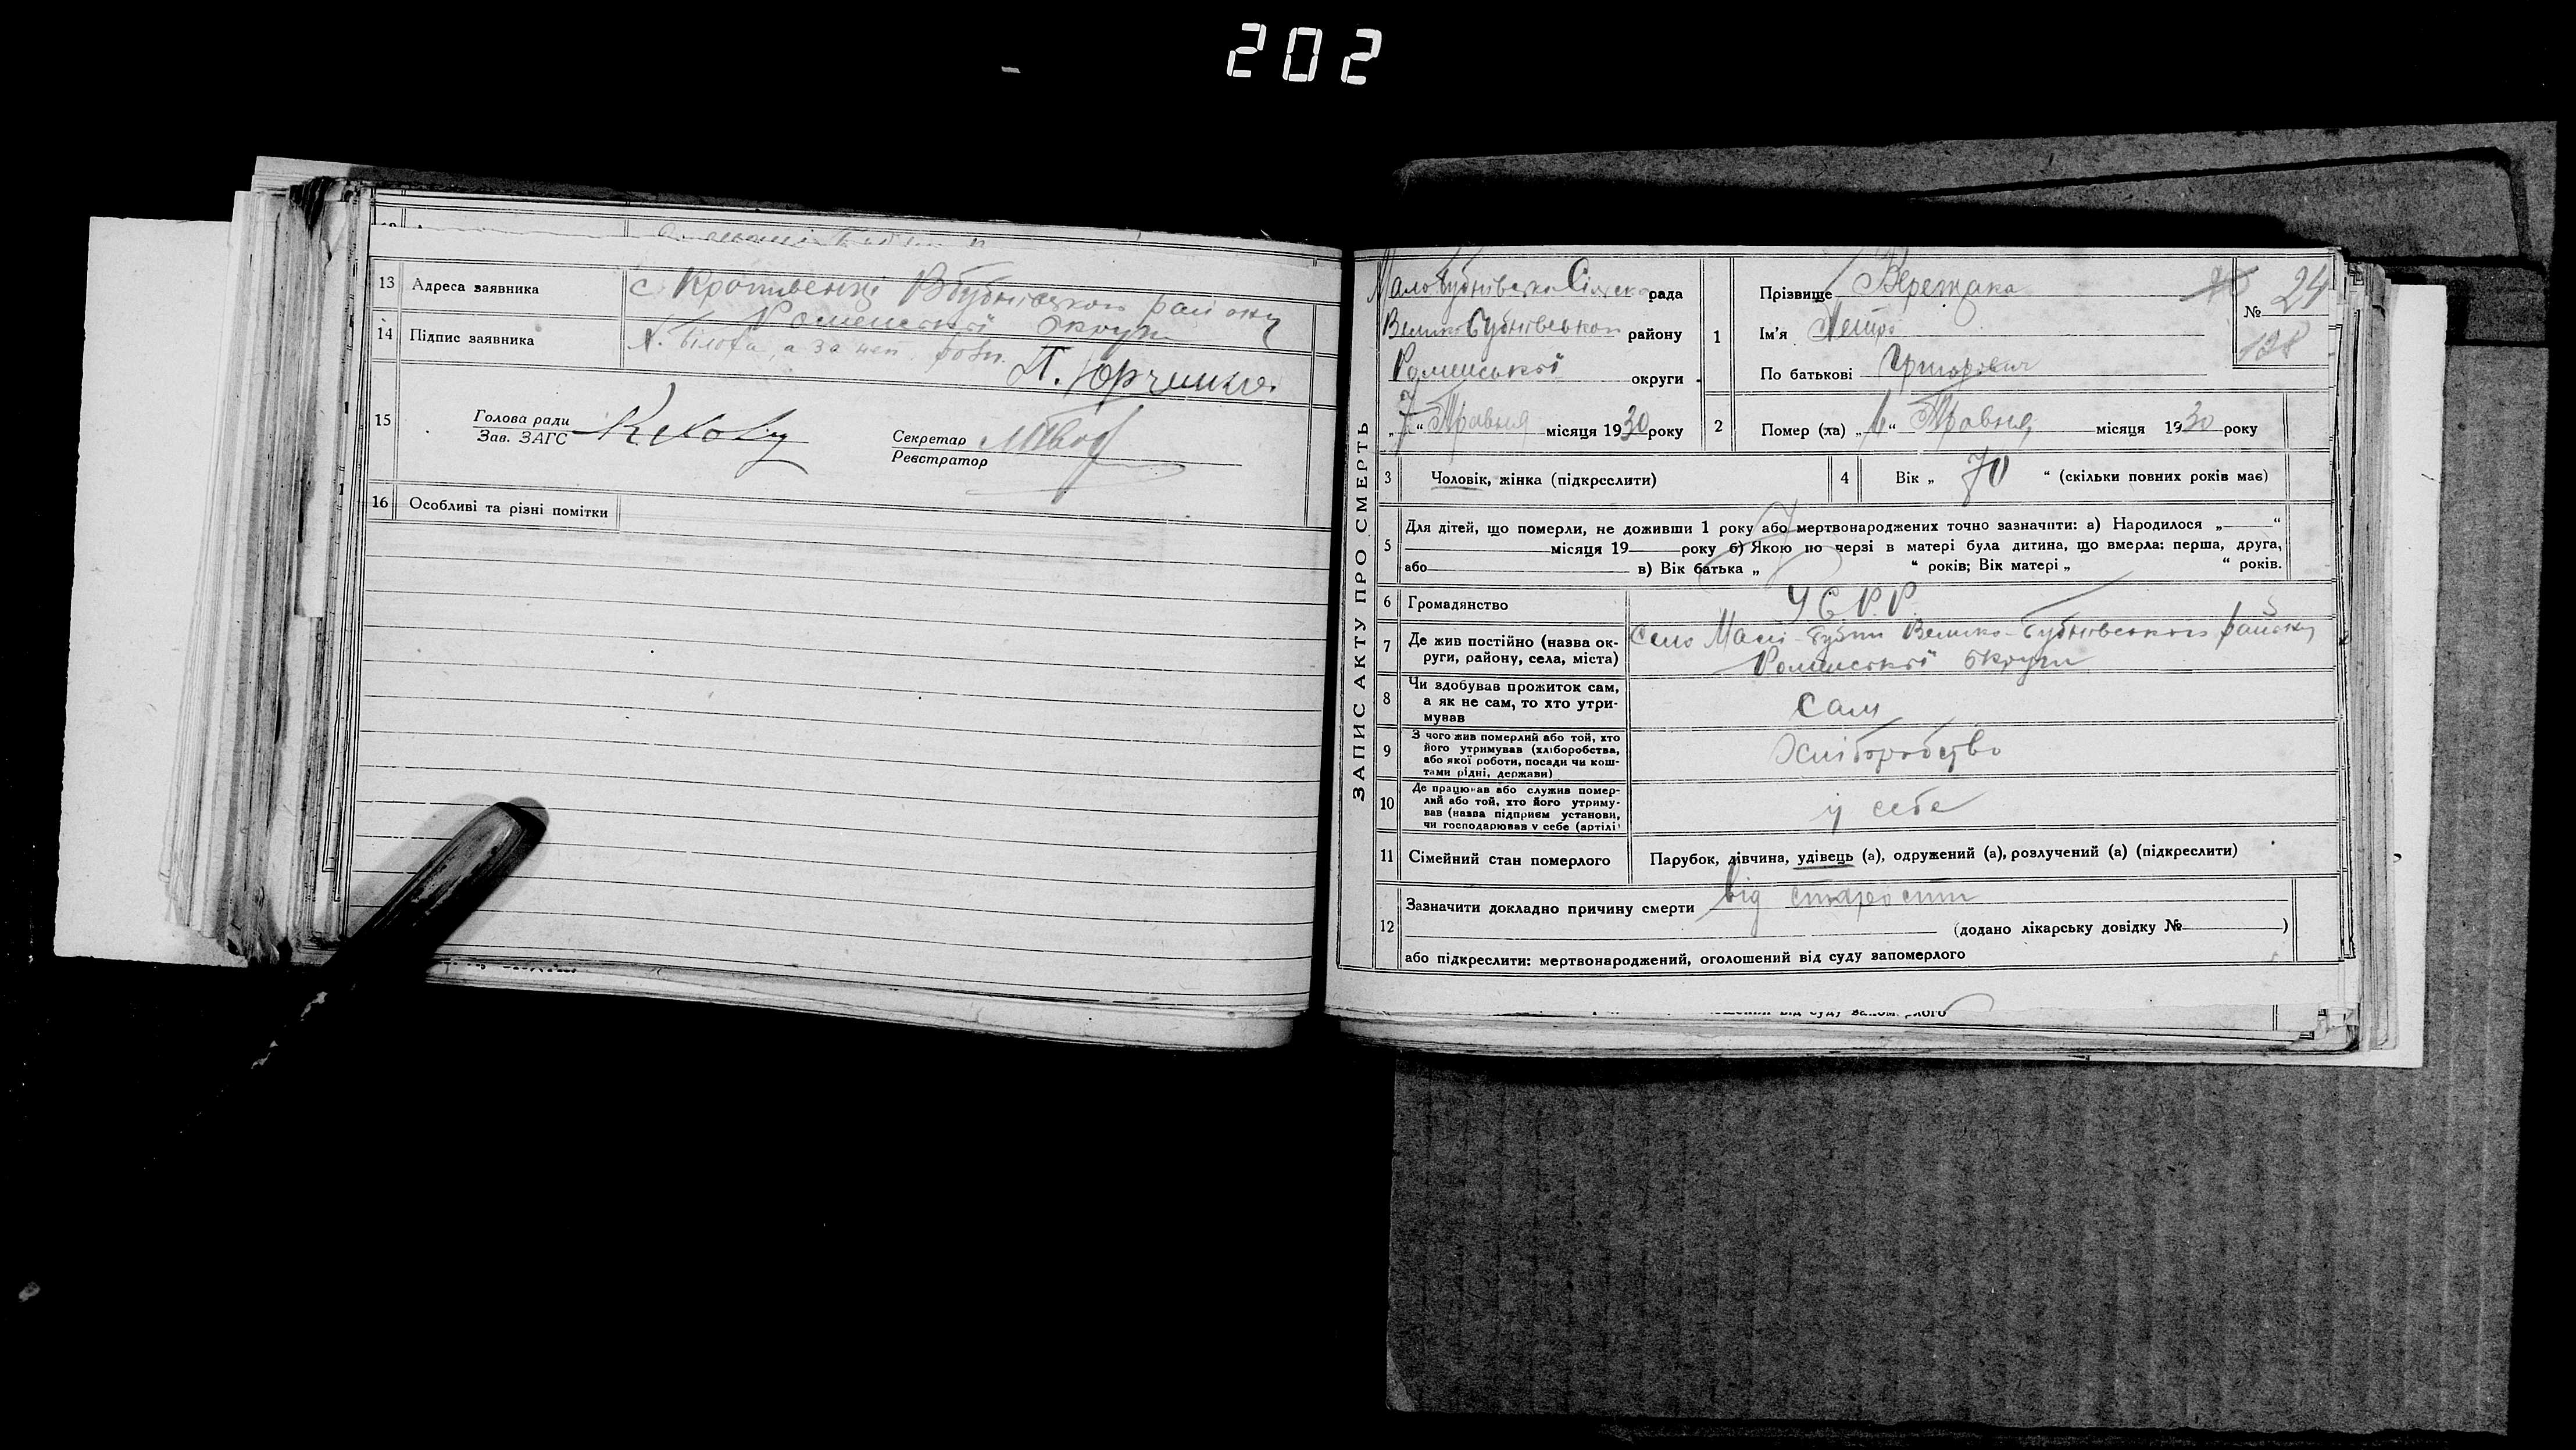 202
13 Адреса заявника с Кропивенці Вбубнівцького району
Роменської округи
14 Підпис заявника Х. Білоха, а за неп. розп.
П. Юрченко.
15 Голова ради
Зав. ЗАГС
Секретар
Реєстратор
16 Особливі та різні помітки
ЗАПИС АКТУ ПРО СМЕРТЬ
Малобубнівська Сільська рада
Великобубнівського району
Роменської округи
„7“ Травня місяця 1930 року
1 Прізвище Бережака
Ім'я Петро
По батькові Григорович
№ 24
128
2 Помер (ла) „6“ Травня місяця 1930 року
3 Чоловік, жінка (підкреслити)
4 Вік „ 70 “ (скільки повних років має)
5 Для дітей, що померли, не доживши 1 року або мертвонароджених точно зазначити: а) Народилося „ “
місяця 19 року б) Якою по черзі в матері була дитина, що вмерла: перша, друга,
або в) Вік батька „ “ років; Вік матері „ “ років.
6 Громадянство У.С.Р.Р.
7 Де жив постійно (назва округи, району, села, міста) Село Малі-Бубни Велико-Бубнівського району
Роменської округи
8 Чи здобував прожиток сам, а як не сам, то хто утримував сам
9 З чого жив померлий або той, хто його утримував (хліборобства, або якої роботи, посади чи коштами рідні, держави) Хліборобство
10 Де працював або служив померлий або той, хто його утримував (назва підприєм установи, чи господарював у себе (артілі у себе
11 Сімейний стан померлого Парубок, дівчина, удівець (а), одружений (а), розлучений (а) (підкреслити)
12 Зазначити докладно причину смерти від старости
(додано лікарську довідку № )
або підкреслити: мертвонароджений, оголошений від суду запомерлого